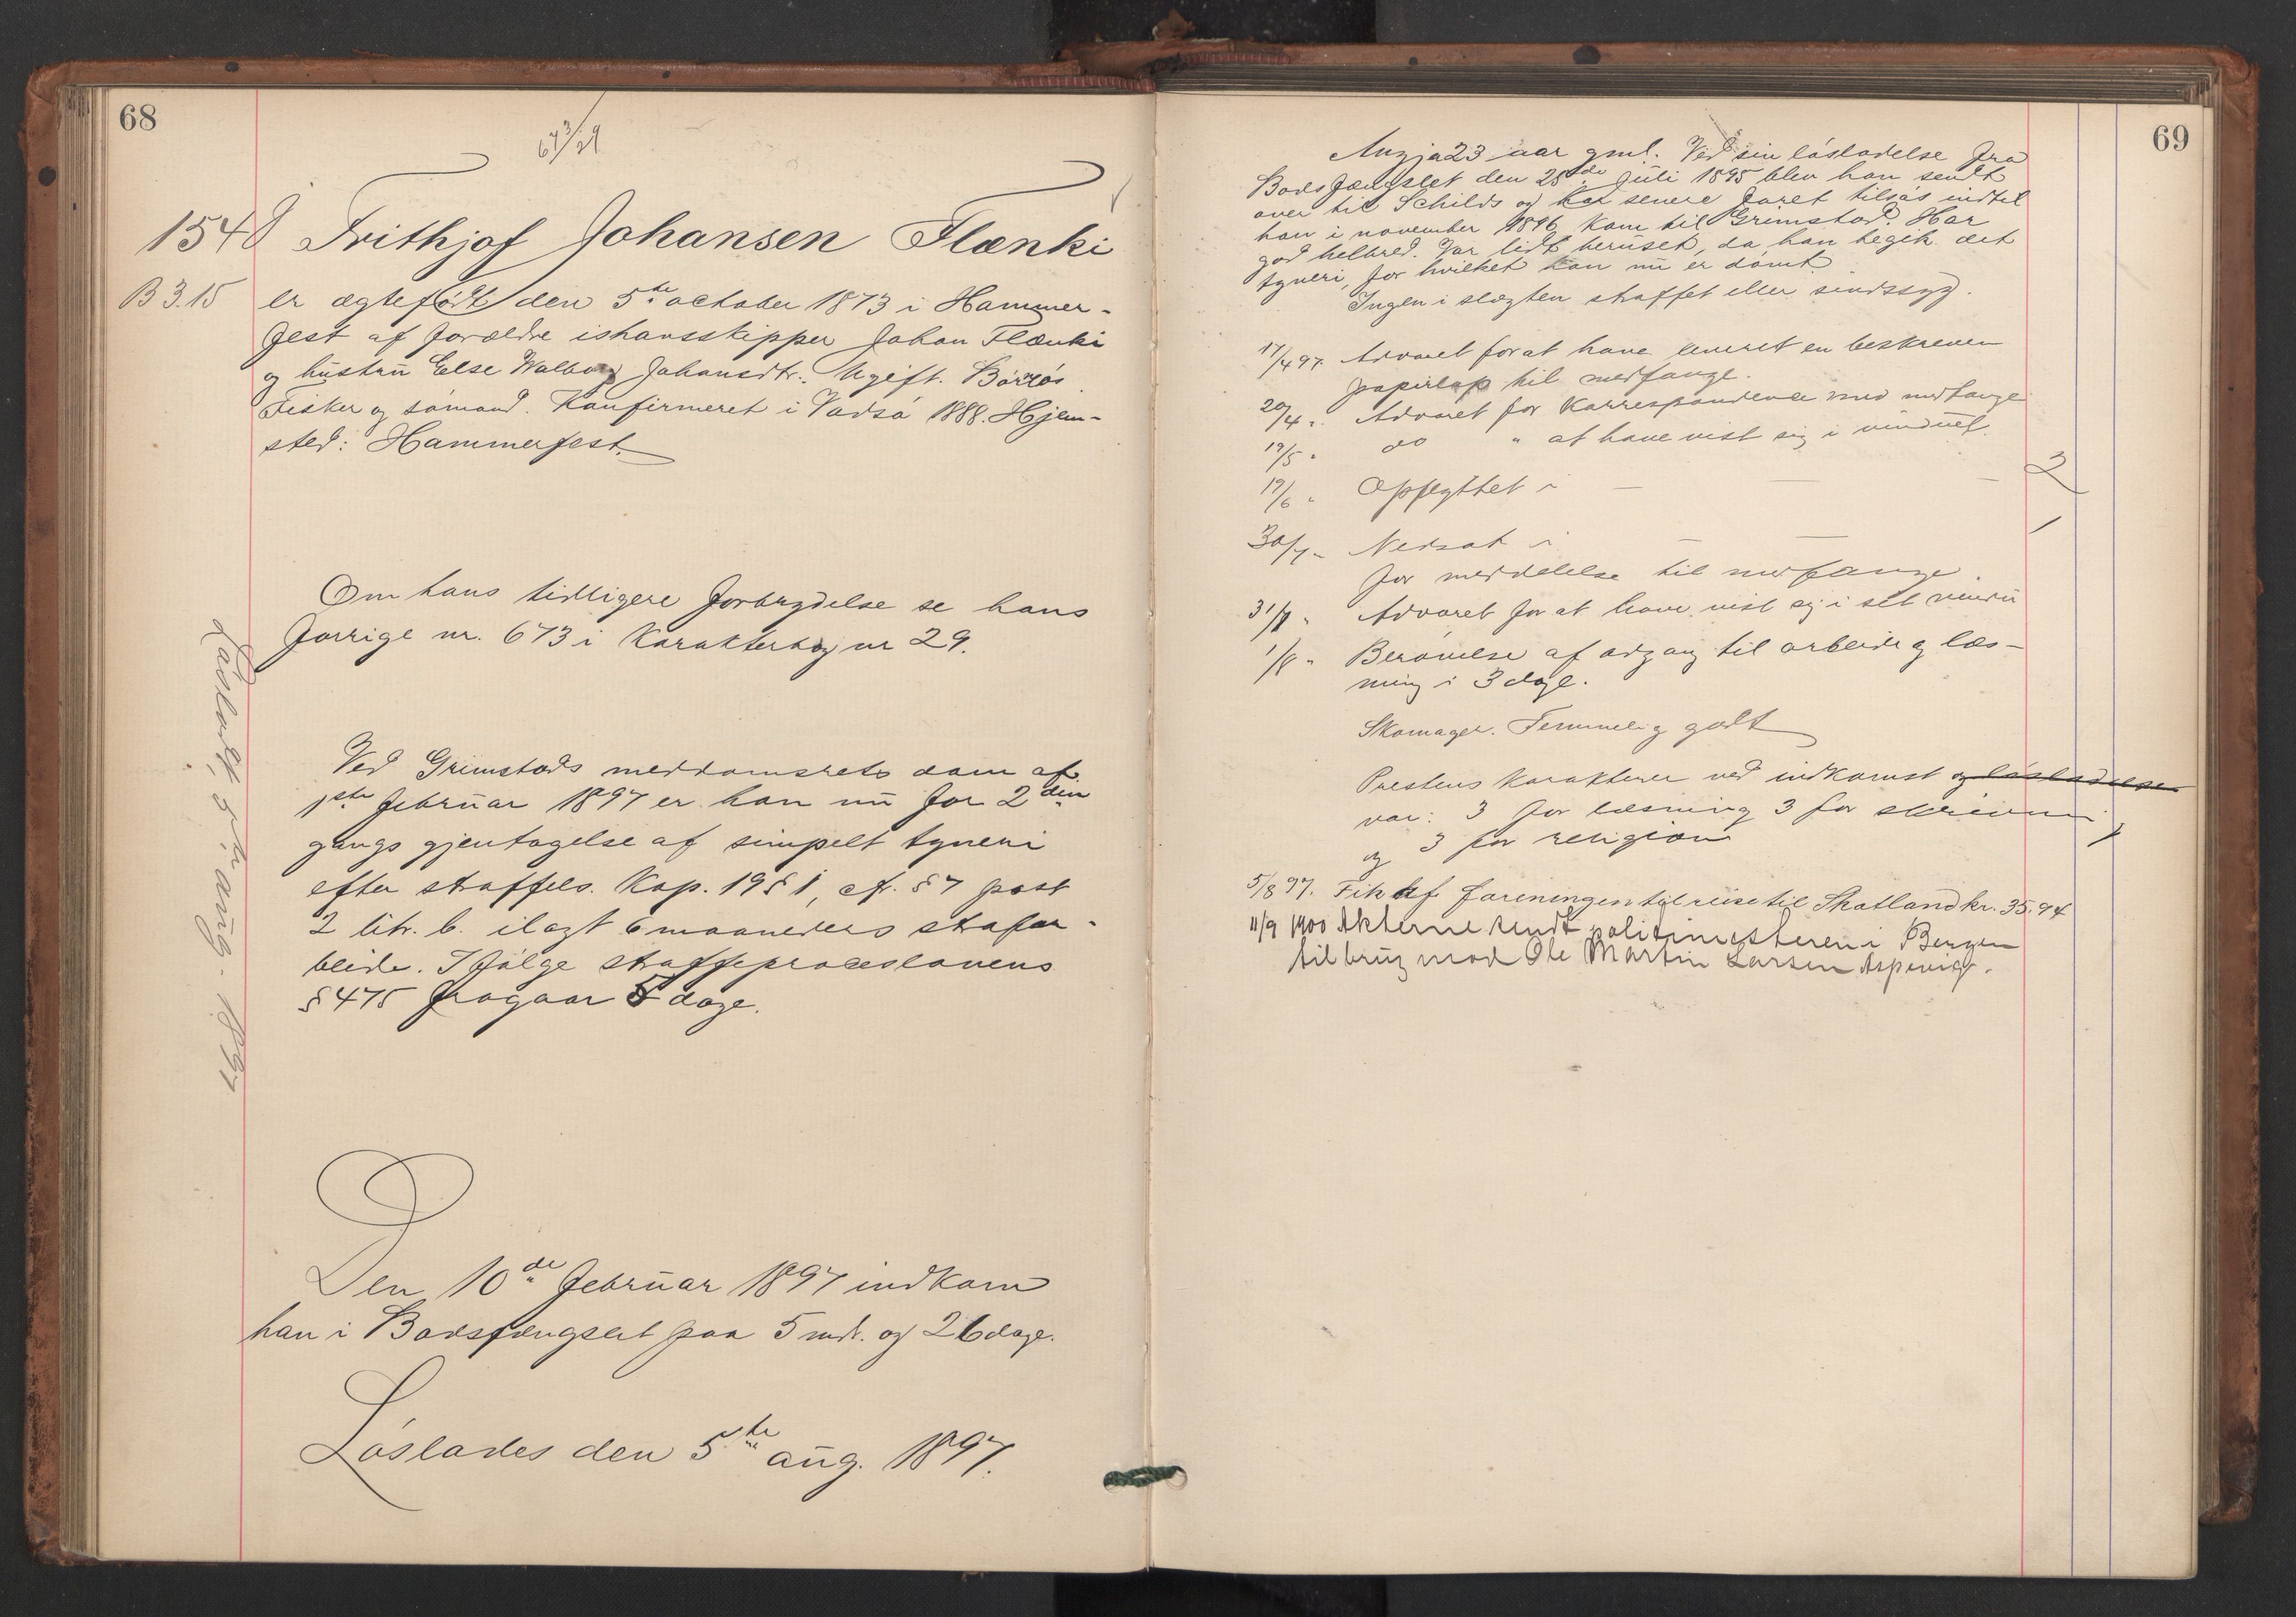 68
673/29
1548 Frithjof Johansen Flænki
B 3.15 er ægtefødt den 5te october 1873 i Hammer-
fest af forældre ishavsskipper Johan Flænki
og hustru Else Walborg Johansdtr. Ugift. Barnløs.
Fisker og sømand. Konfirmeret i Vadsø 1888. Hjem-
sted: Hammerfest.
Om hans tidligere forbrydelse se hans
forrige nr. 673 i Karakterbog nr 29.
Ved Grimstads meddomsrets dom af
1ste februar 1897 er han nu for 2den
gangs gjentagelse af simpelt tyveri
efter straffels. Kap. 19 § 1, cfr. § 7 post
2 litr. b. ilagt 6 maaneders strafar-
beide. Ifølge straffeproceslovens
§ 475 fragaar 5 dage.
Den 10de februar 1897 indkom
han i Bodsfængslet paa 5 mdr. og 26 dage.
Løslades den 5te aug. 1897.
Løsladt 5te aug. 1897
69
23 aar gml. Ved sin løsladelse fra
Bodsfængslet den 25de juli 1895 blev han sendt
over til Schilds og har senere faret tilsjøs indtil
han i november 1896 kom til Grimstad. Har
god helbred. Var lidt beruset, da han begik det
tyveri, for hvilket han nu er dømt.
Ingen i slægten straffet eller sindssyg.
17/4 97. Advaret for at have leveret en beskreven
papirlap til medfange.
20/4 " Advaret for Korrespondence med medfange
19/5 " do " at have vist sig i vinduet.
19/6 " Opflyttet i — — — 2
30/7 " Nedsat i — — 1
for meddelelse til medfange.
31/7 " Advaret for at have vist sig i sit vindu
1/8 " Berøvelse af adgang til arbeide og læs-
ning i 3 dage.
Skomager. Temmelig godt
Prestens karakterer ved indkomst og løsladelse
var: 3 for læsning 3 for skrivning
og 3 for religion
5/8 97. Fik af foreningen til reise til Skotland kr. 35.94
11/9 1900 Akterne sendt politimesteren i Bergen
til brug mod Ole Martin Larsen Aspevig.